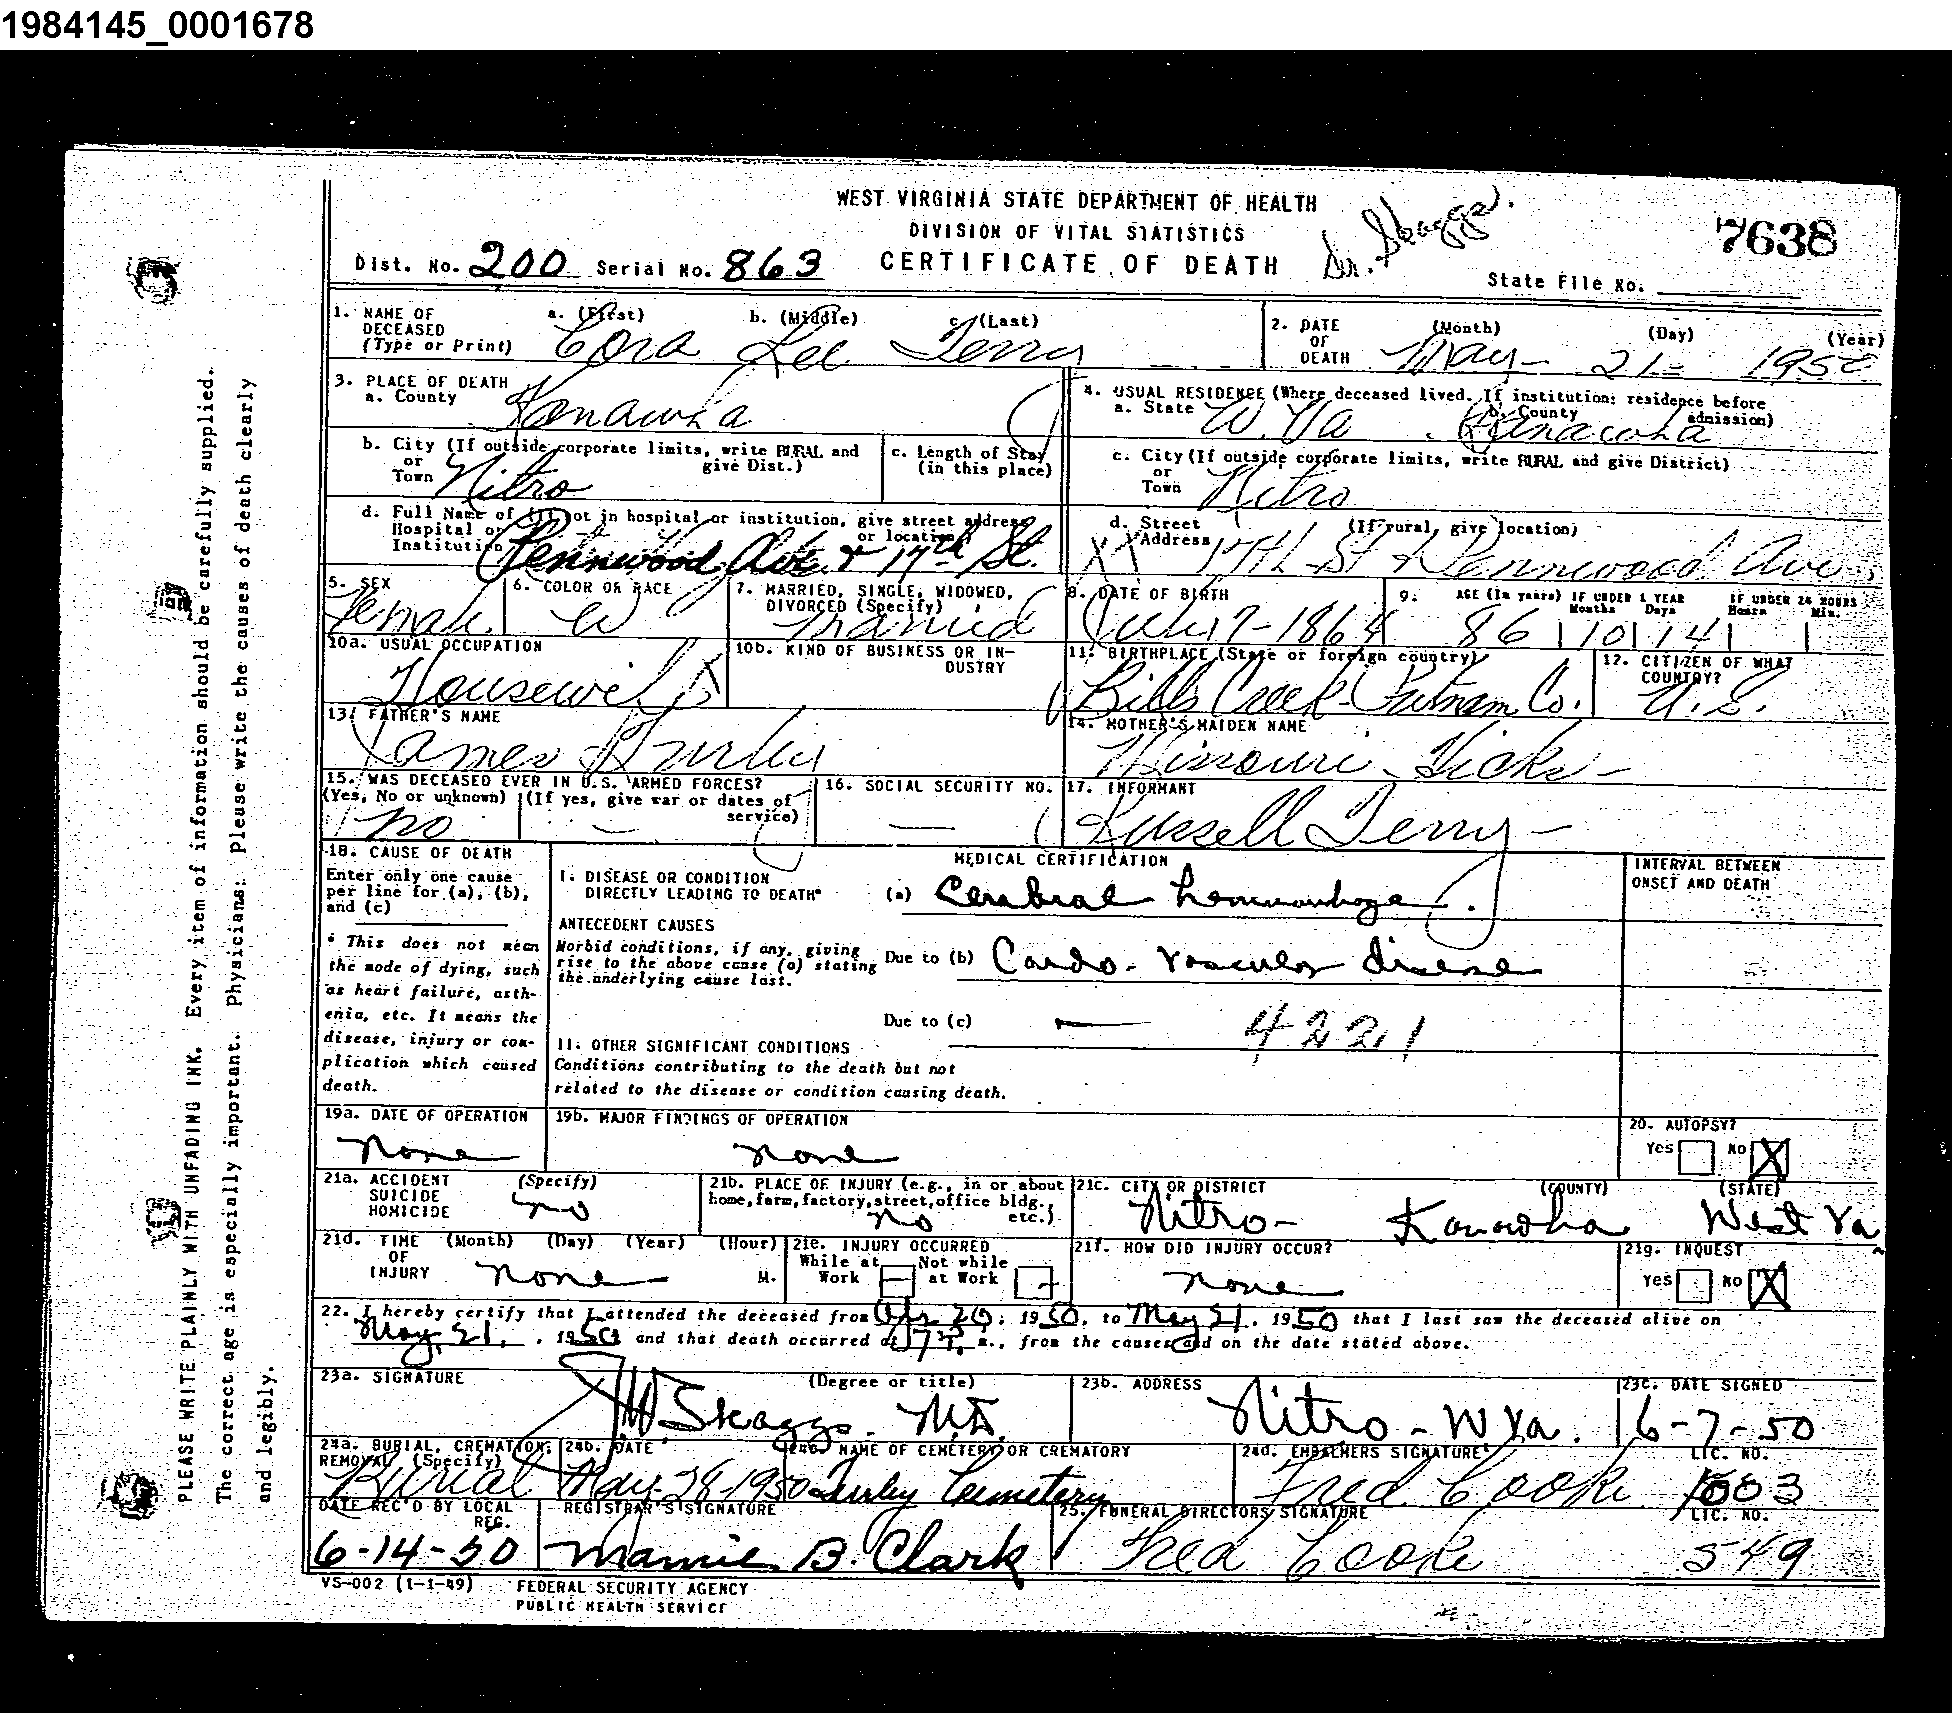 1984145_0001678
WEST VIRGINIA STATE DEPARTMENT OF HEALTH
DIVISION OF VITAL STATISTICS
CERTIFICATE OF DEATH
Dr. Skaggs.
7638
Dist. No. 200 Serial No. 863
State File No.
1. NAME OF DECEASED (Type or Print) a. (First) b. (Middle) c. (Last)
Cora Lee Terry
2. DATE OF DEATH (Month) (Day) (Year)
May - 21 - 1950
3. PLACE OF DEATH
a. County Kanawha
4. USUAL RESIDENCE (Where deceased lived. If institution: residence before admission)
a. State W. Va b. County Kanawha
b. City (If outside corporate limits, write RURAL and give Dist.) or Town Nitro
c. Length of Stay (in this place)
c. City (If outside corporate limits, write RURAL and give District) or Town Nitro
d. Full Name of Hospital or Institution (If not in hospital or institution, give street address or location) Pennwood Ave. & 17th St.
d. Street Address (If rural, give location) 17th St & Pennwood Ave
5. SEX Female
6. COLOR OR RACE W
7. MARRIED, SINGLE, WIDOWED, DIVORCED (Specify) Married
8. DATE OF BIRTH July 7-1864
9. AGE (In years) IF UNDER 1 YEAR Months Days IF UNDER 24 HOURS Hours Min.
86 10 14
10a. USUAL OCCUPATION Housewife
10b. KIND OF BUSINESS OR INDUSTRY
11. BIRTHPLACE (State or foreign country) Bills Creek - Putnam Co.
12. CITIZEN OF WHAT COUNTRY? U. S.
13. FATHER'S NAME James
14. MOTHER'S MAIDEN NAME Missouri Hicks -
15. WAS DECEASED EVER IN U.S. ARMED FORCES?
(Yes, No or unknown) (If yes, give war or dates of service)
no —
16. SOCIAL SECURITY NO. —
17. INFORMANT Russell Terry -
18. CAUSE OF DEATH
Enter only one cause per line for (a), (b), and (c)
* This does not mean the mode of dying, such as heart failure, asthenia, etc. It means the disease, injury or complication which caused death.
MEDICAL CERTIFICATION
INTERVAL BETWEEN ONSET AND DEATH
I. DISEASE OR CONDITION DIRECTLY LEADING TO DEATH* (a) Cerebral hemorrhage.
ANTECEDENT CAUSES
Morbid conditions, if any, giving rise to the above cause (a) stating the underlying cause last.
Due to (b) Cardo-vascular disease
Due to (c) — 4221
II. OTHER SIGNIFICANT CONDITIONS
Conditions contributing to the death but not related to the disease or condition causing death.
19a. DATE OF OPERATION none
19b. MAJOR FINDINGS OF OPERATION none
20. AUTOPSY? Yes No X
21a. ACCIDENT SUICIDE HOMICIDE (Specify) no
21b. PLACE OF INJURY (e.g., in or about home, farm, factory, street, office bldg., etc.) no
21c. CITY OR DISTRICT (COUNTY) (STATE)
Nitro - Kanawha West Va.
21d. TIME OF INJURY (Month) (Day) (Year) (Hour) M. none
21e. INJURY OCCURRED While at Work Not while at Work
21f. HOW DID INJURY OCCUR? none
21g. INQUEST Yes No X
22. I hereby certify that I attended the deceased from Apr 20, 1950, to May 21, 1950 that I last saw the deceased alive on
May 21, 1950 and that death occurred at m., from the causes and on the date stated above.
23a. SIGNATURE (Degree or title) Skaggs. M.D.
23b. ADDRESS Nitro - W Va.
23c. DATE SIGNED 6-7-50
24a. BURIAL, CREMATION, REMOVAL (Specify) Burial
24b. DATE May-28-1950
24c. NAME OF CEMETERY OR CREMATORY Cemetery
24d. EMBALMERS SIGNATURE LIC. NO.
Fred Cooke 1003
DATE REC'D BY LOCAL REG. 6-14-50
REGISTRAR'S SIGNATURE Mamie B. Clark
25. FUNERAL DIRECTORS SIGNATURE LIC. NO.
Fred Cooke 549
VS-002 (1-1-49) FEDERAL SECURITY AGENCY
PUBLIC HEALTH SERVICE
PLEASE WRITE PLAINLY WITH UNFADING INK. Every item of information should be carefully supplied.
The correct age is especially important. Physicians: please write the causes of death clearly
and legibly.